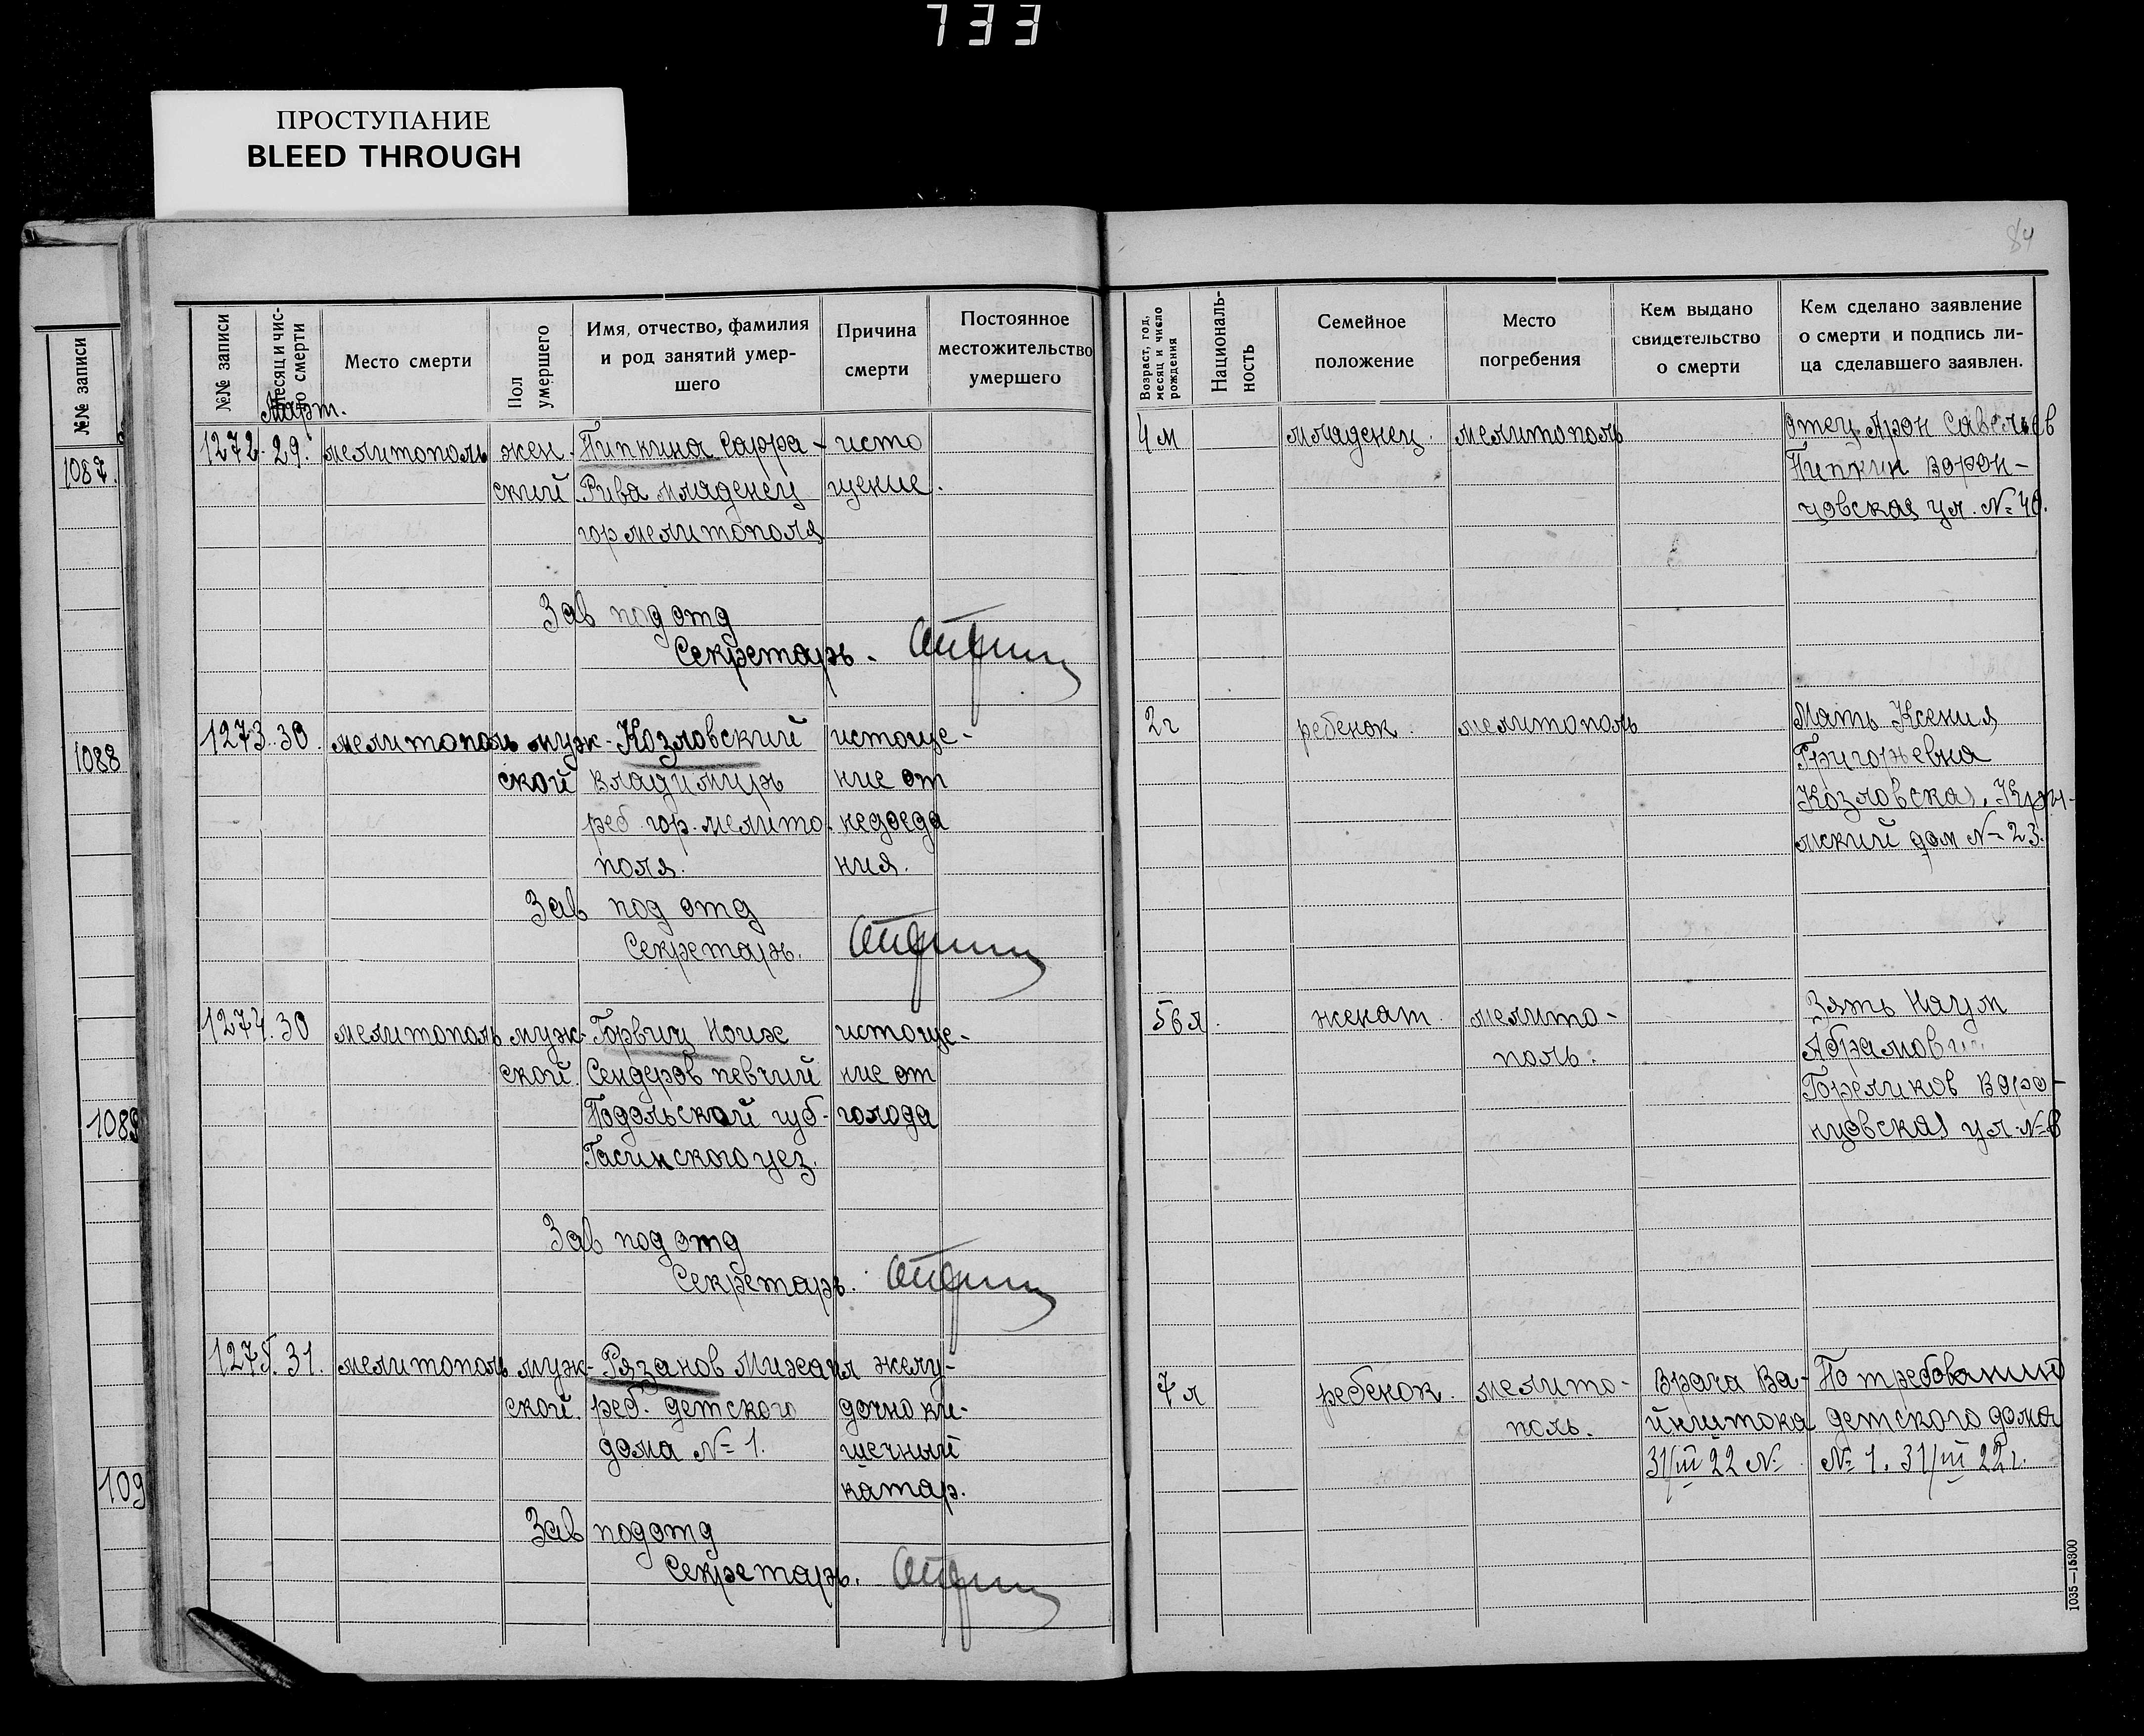 733
ПРОСТУПАНИЕ
BLEED THROUGH
84
№№ записи
1087.
1088
1089
109
№№ записи
Месяц и число смерти
Место смерти
Пол умершего
Имя, отчество, фамилия
и род занятий умер-
шего
Причина
смерти
Постоянное
местожительство
умершего
Возраст, год,
месяц и число
рождения
Националь-
ность
Семейное
положение
Место
погребения
Кем выдано
свидетельство
о смерти
Кем сделано заявление
о смерти и подпись ли-
ца сделавшего заявлен.
Март.
1272. 29. мелитополь жен- Пипкина Сарра- исто
ский Рива младенец щение.
гор мелитополя
Зав подотд
Секретарь.
4 м младенец. мелитополь отец Арон Савельев
Пипкин Ворон-
цовская ул. № 40.
1273. 30. мелитополь муж- Козловский истоще-
ской Владимиръ ние от
реб. гор. мелито- недоеда
поля. ния.
Зав под отд
Секретарь.
2 г ребенок. мелитополь Мать Ксения
Григорьевна
Козловская,
дом № 23.
1274. 30 мелитополь муж- Горвиц истоще-
ской. Сендеров певчий ние от
Подольской губ- голода
уез.
Зав подотд
Секретарь.
56 л. женат. мелито- Зять Наум
поль. Абрамович
Гореликов Воро-
нцовская ул. № 8
1275. 31. мелитополь муж- Рязанов Михаил желу-
ской. реб. детского дочно ки-
дома № 1. шечный
катар.
Зав подотд
Секретарь.
7 л ребенок. мелито- Врача Ва- По требованию
поль. йнштока детского дома
31/III 22 № № 1. 31/III 22 г.
1035—15300